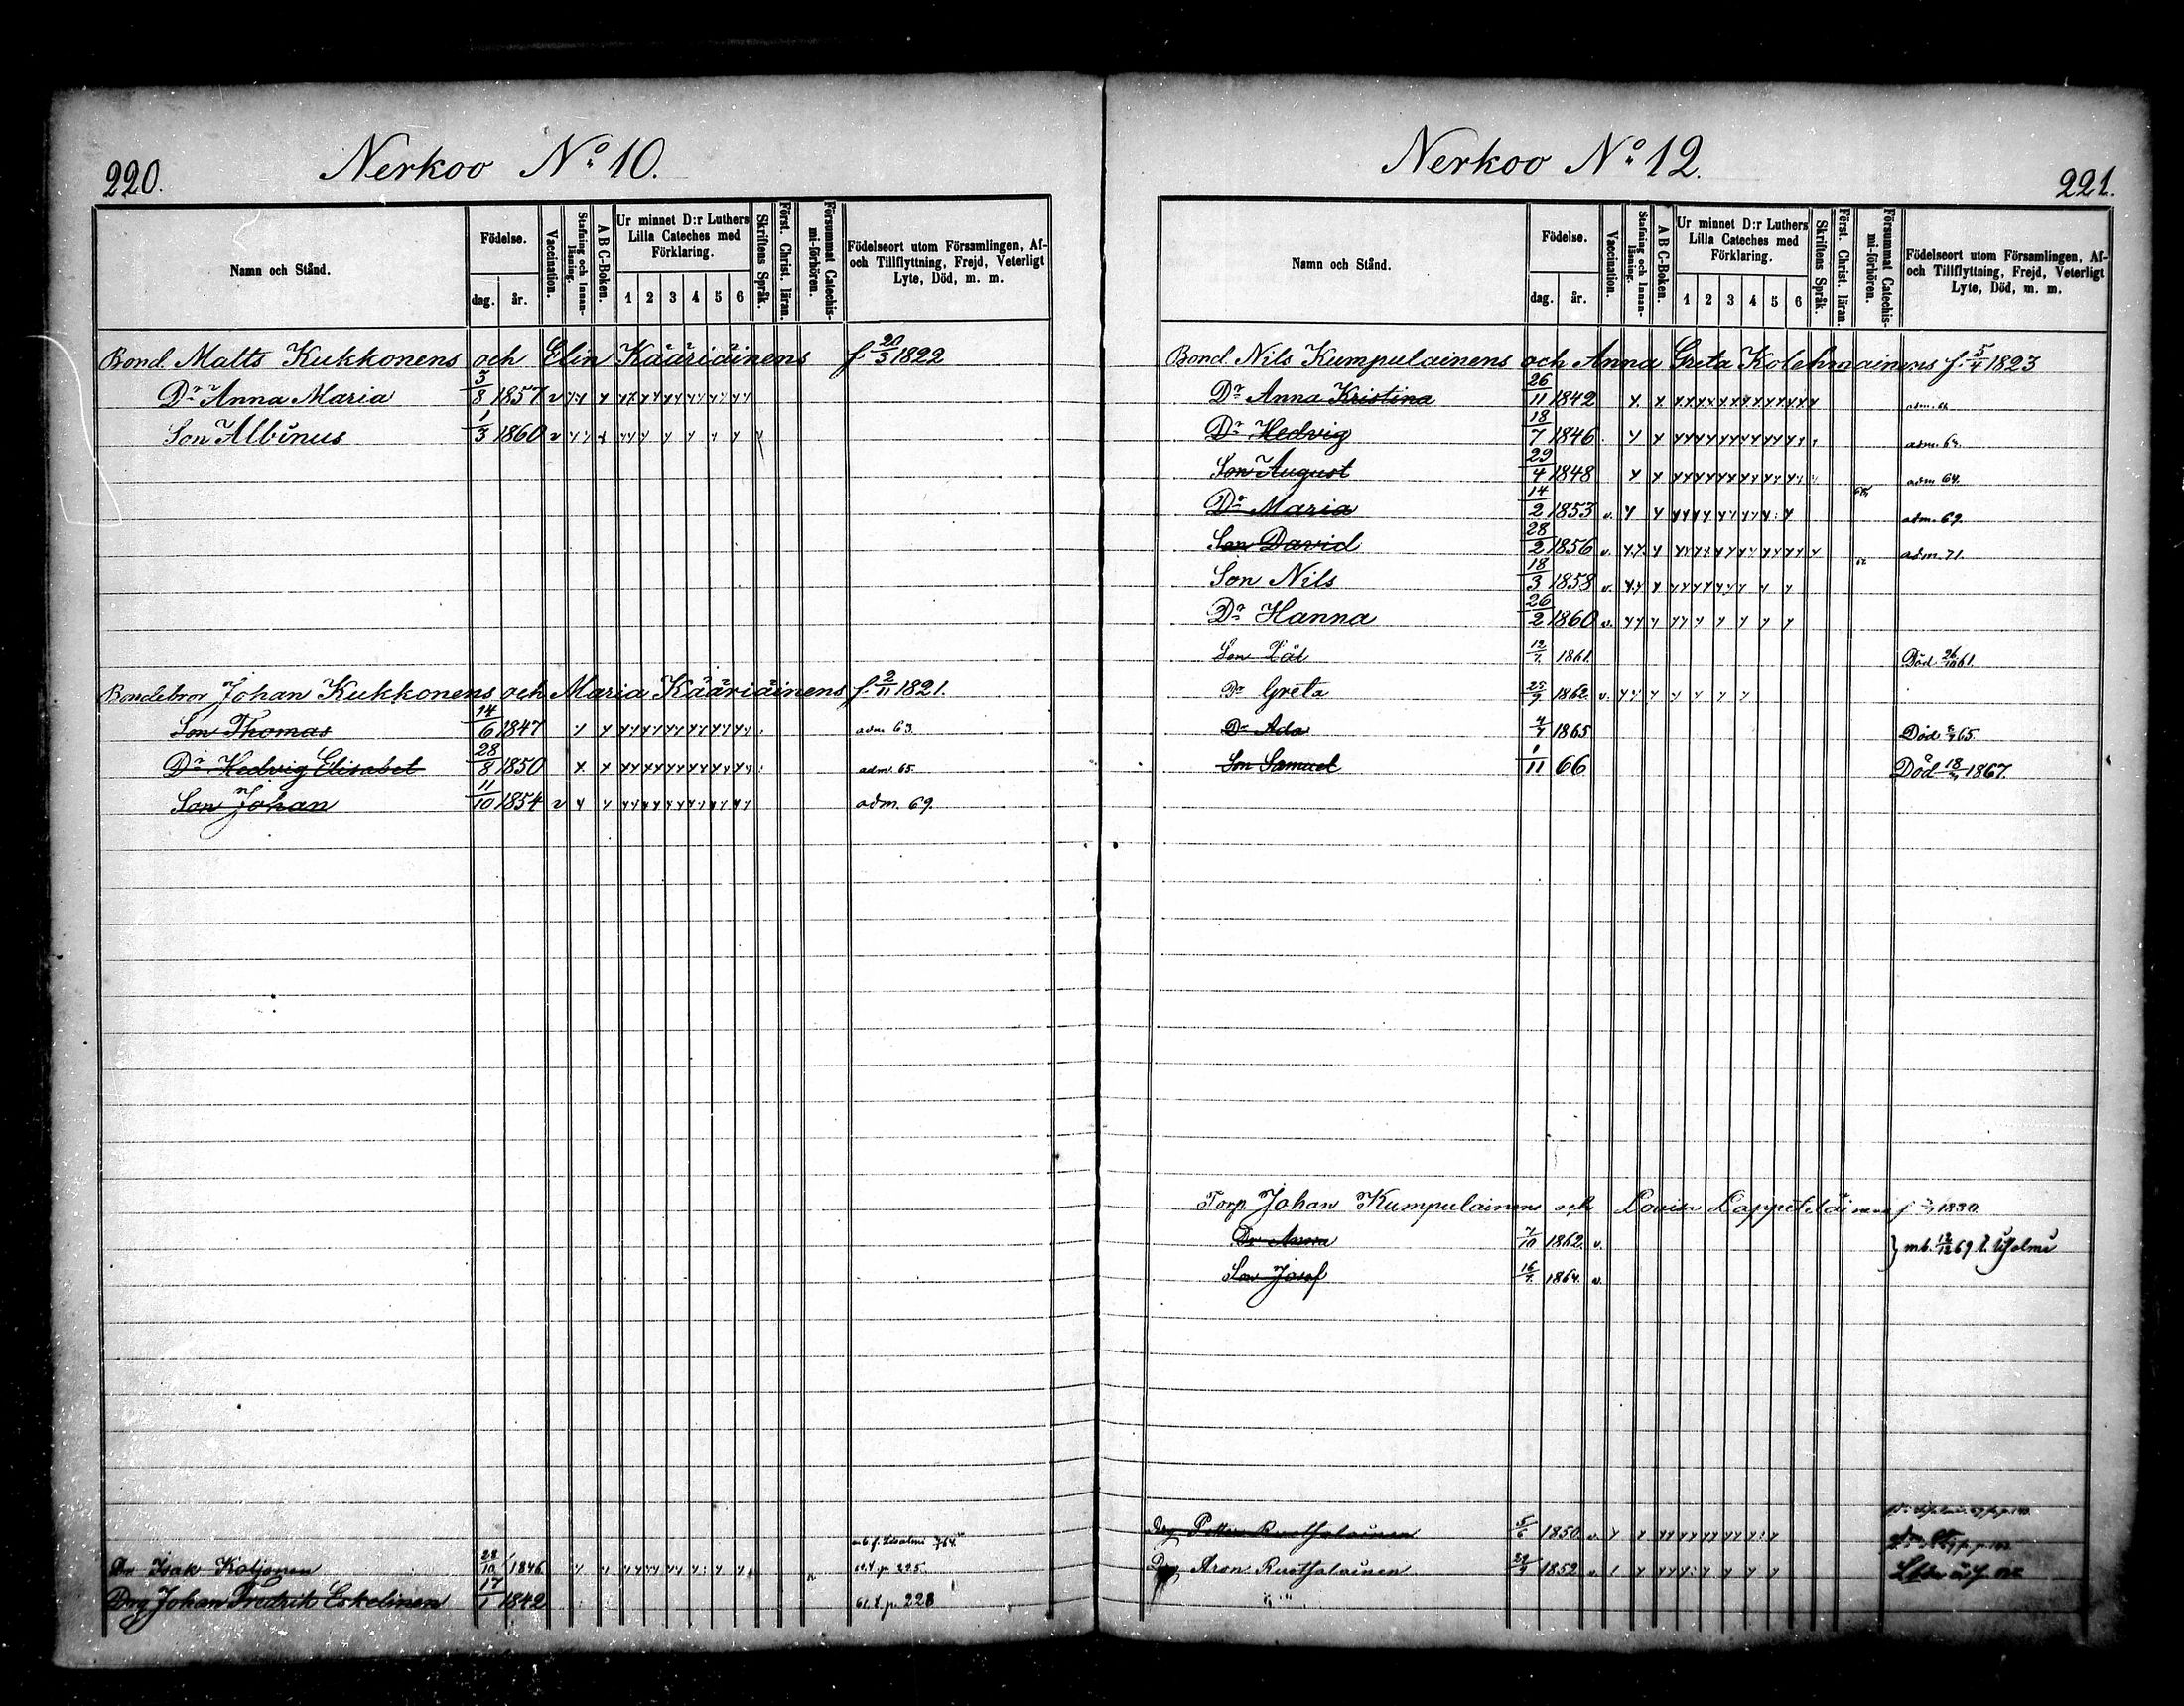 220.
Nerkoo No 10.
Namn och Stånd.
Födelse.
dag. år.
Vaccination.
Stafning och Innanläsning.
A B C-Boken.
Ur minnet D:r Luthers Lilla Cateches med Förklaring.
1 2 3 4 5 6
Skriftens Språk.
Först. Christ. läran.
Försummat Catechismi-förhören.
Födelseort utom Församlingen, Af- och Tillflyttning, Frejd, Veterligt Lyte, Död, m. m.
Bond. Matts Kukkonens och Elin Kääriäinens f. 20/3 1822
Dr Anna Maria 3/8 1857 v
Son Albinus 1/3 1860 v
Bondebror Johan Kukkonens och Maria Kääriäinens f. 2/11 1821.
Son Thomas 14/6 1847 adm 63.
Dr Hedvig Elisabet 28/8 1850 adm. 65.
Son Johan 11/10 1854 v adm. 69.
Dr Isak Koljonen 28/10 1846 p. 225.
Drg Johan Fredrik Eskelinen 17/1 1842 p. 228
221.
Nerkoo No 12.
Namn och Stånd.
Födelse.
dag. år.
Vaccination.
Stafning och Innanläsning.
A B C-Boken.
Ur minnet D:r Luthers Lilla Cateches med Förklaring.
1 2 3 4 5 6
Skriftens Språk.
Först. Christ. läran.
Försummat Catechismi-förhören.
Födelseort utom Församlingen, Af- och Tillflyttning, Frejd, Veterligt Lyte, Död, m. m.
Bond. Nils Kumpulainens och Anna Greta Kolehmainens f. 5/4 1823
Dr Anna Kristina 26/11 1842 adm.
Dr Hedvig 18/7 1846 adm.
Son August 29/4 1848 adm 64.
Dr Maria 14/2 1853 v. adm. 69.
Son David 28/2 1856 v. adm. 71.
Son Nils 18/3 1858 v.
Dr Hanna 26/2 1860 v.
Son Pål 12/7 1861 Död 26/10 61
Dr Greta 25/9 1862 v.
Dr Ada 4/7 1865 Död 65.
Son Samuel 1/11 66 Död 18/ 1867.
Torp. Johan Kumpulainens och Lovisa Lappeteläinens f 1830.
Dr Anna 7/10 1862 v. mb. 12/12 69 t. Idensalmi
Son Josef 16/7 1864 v.
Drg Petter Ruotsalainen 5/6 1850 v.
Drg Aron Ruotsalainen 1852 v